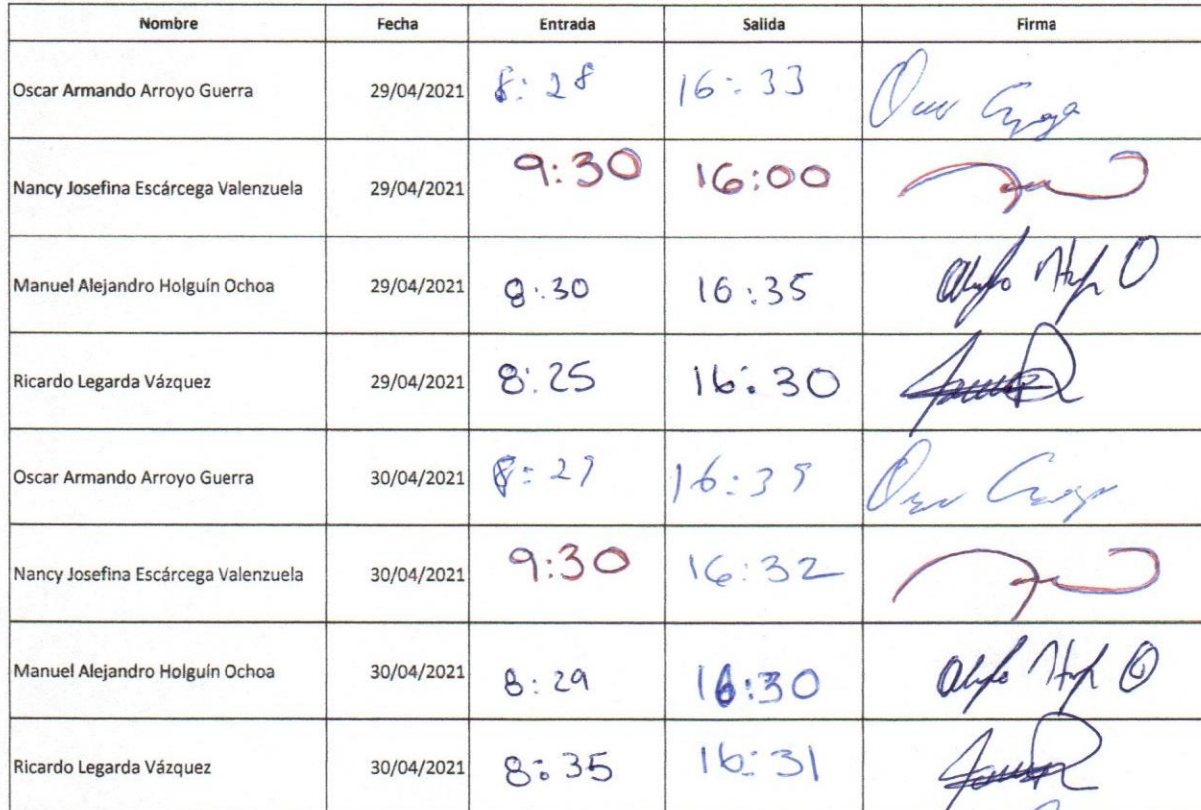 Nombre Fecha Entrada Salida Firma
Oscar Armando Arroyo Guerra 29/04/2021 8:28 16:33
Nancy Josefina Escárcega Valenzuela 29/04/2021 9:30 16:00
Manuel Alejandro Holguín Ochoa 29/04/2021 8:30 16:35
Ricardo Legarda Vázquez 29/04/2021 8:25 16:30
Oscar Armando Arroyo Guerra 30/04/2021
Nancy Josefina Escárcega Valenzuela 30/04/2021 9:30 16:32
Manuel Alejandro Holguín Ochoa 30/04/2021 8:29 16:30
Ricardo Legarda Vázquez 30/04/2021 8:35 16:31